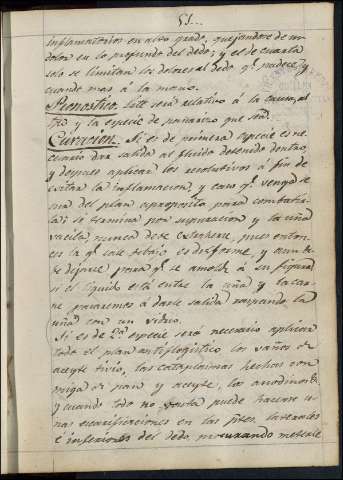 51..
inflamatorios en alto grado, quejandose de un
dolor en lo profundo del dedo; y el de cuarta
solo se limitan los dolores al dedo q.e padece, y
cuando mas á la mano.
Pronostico. Este será relativo á la causa, al
y la especie de panarizo que sea.
Curacion. Si es de primera especie es ne-
cesario dar salida al fluido detenido dentro,
y despues aplicar los resolutivos á fin de
evitar la inflamacion, y caso q.e venga se
usa del plan aproposito para combatir-
la; si termina por supuracion y la uña
vacila, nunca debe extraherse, pues enton-
ces la q.e sale debajo es disforme, y aun de-
be dejarse para q.e se amolde á su figura
si el liquido está entre la uña y la car-
ne pararemos á darle salida raspando la
uña con un vidrio.
Si es de 2.a especie será necesario aplicar
todo el plan antiflogistico los vaños de
aceyte tivio, las cataplasmas hechas con
miga de pan y aceyte, los anodinos &
y cuando todo no vasta puede hacerse u-
nas escarificaciones en las ptes. laterales
é inferiores del dedo, procurando meterle